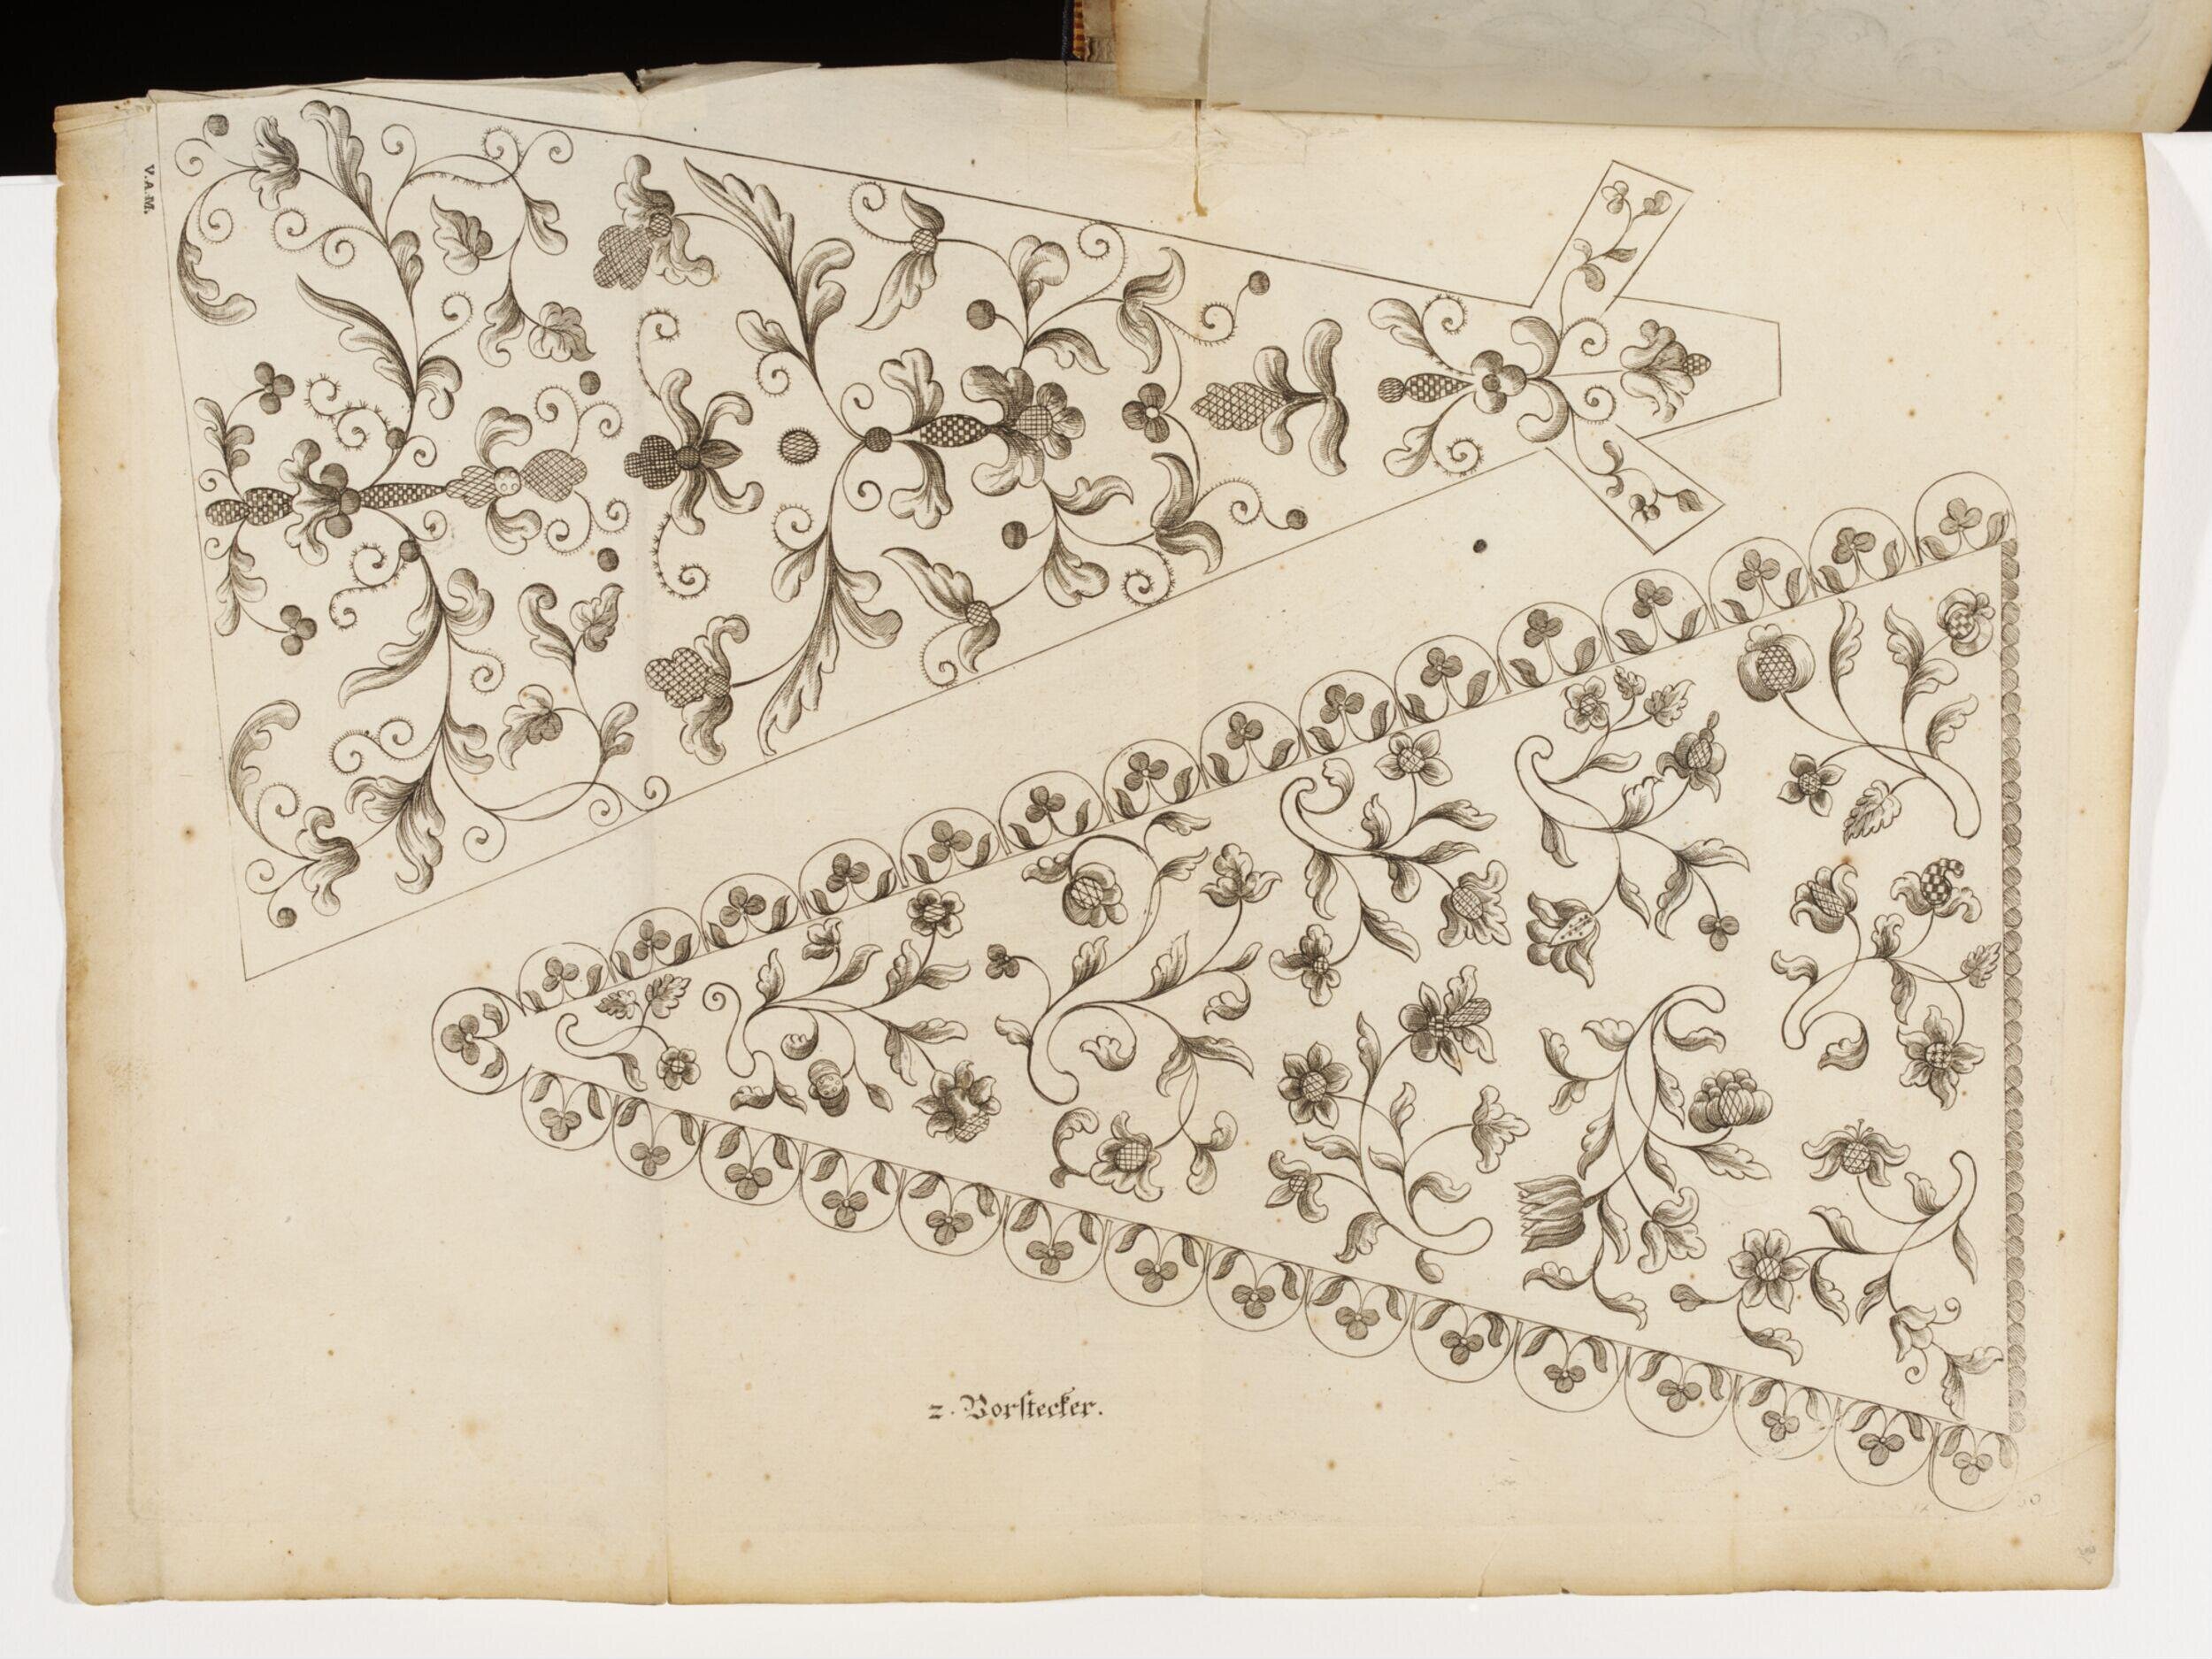 V.A.M.
z. Vorstecker.